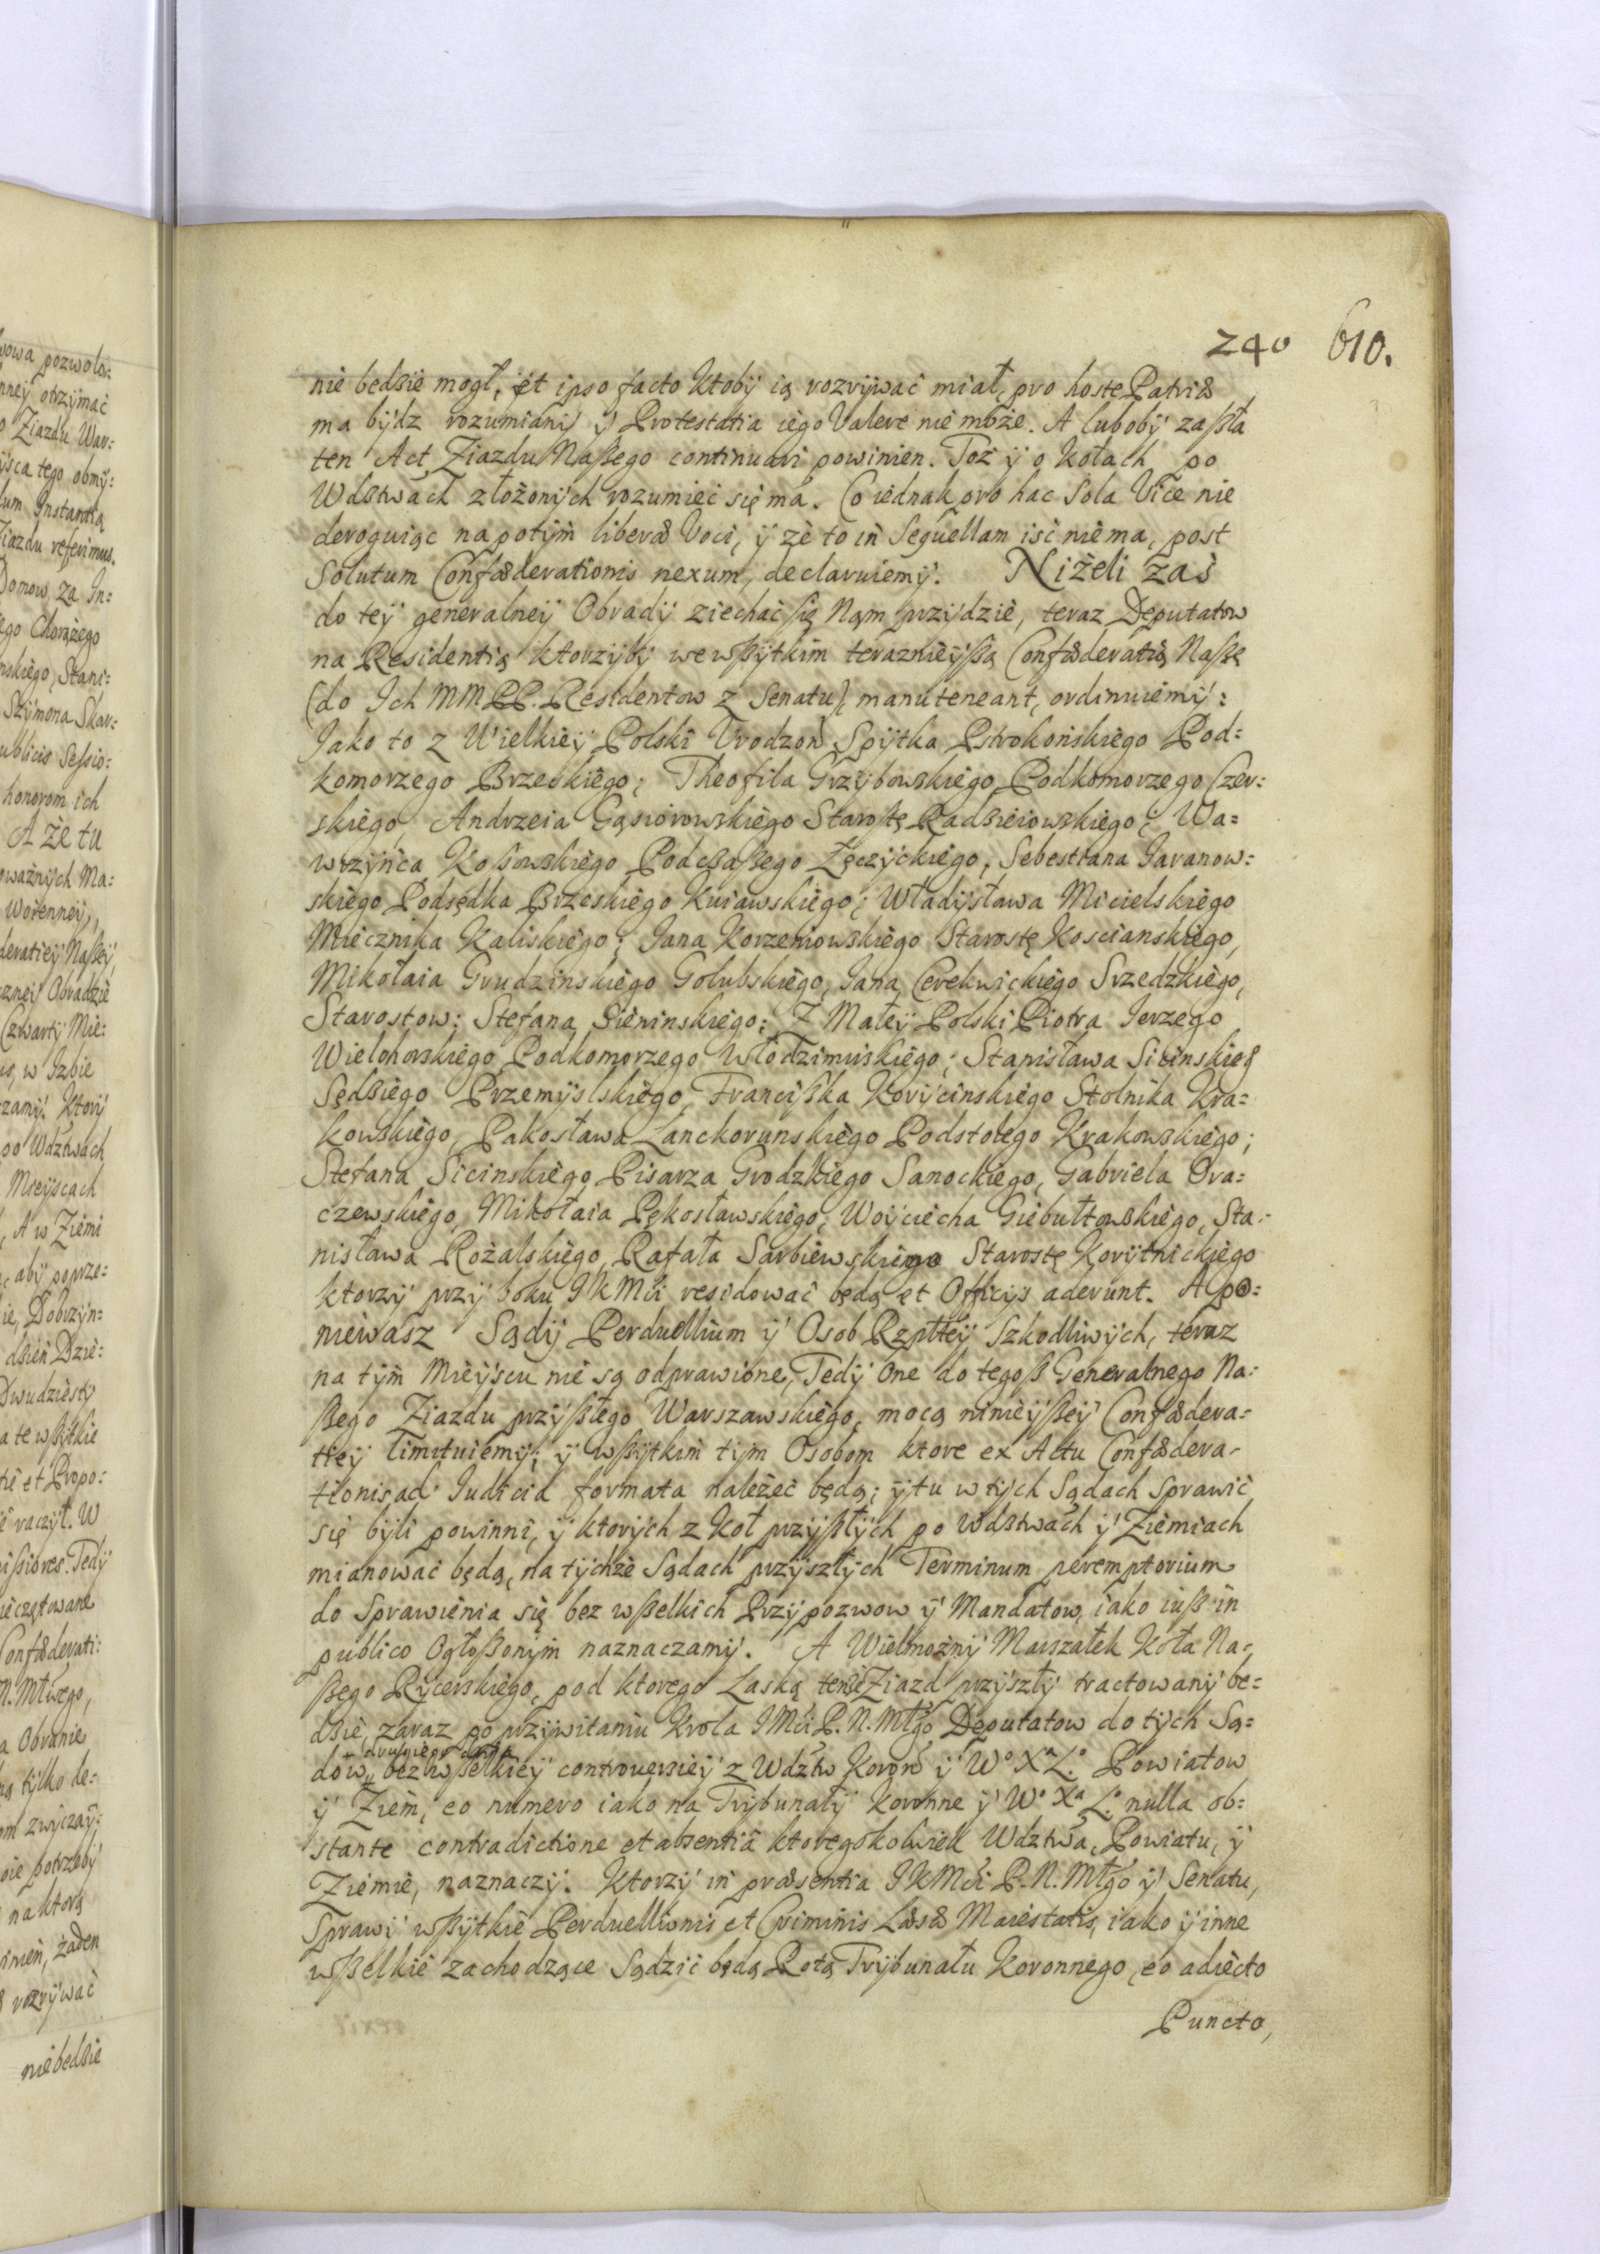 240 610.
nie będzie mogł, et ipso facto ktoby ią rozrywać miał, pro hoste Patriæ
ma bydz rozumiany y Protestatia iego Valere nie może. A luboby zaszła
ten Act Ziazdu Naßego continuari powinien. Toż y o Kołach po
Wdztwach złożonych rozumieć się ma. Co iednak pro hac sola Vice nie
deroguiąc napotym liberæ Voci, y że to in Sequellam iść niema, post
Solutum Confæderationis nexum, declaruiemy. Niżeli zaś
do tey generalney Obrady ziechać się Nam przydzie, teraz Deputatow
na Residentią ktorzyby wewßytkim teraznieyßą Confæderatią Naßę
(do Ich MM PP. Residentow z Senatu) manuteneant, ordinuiemy:
Jako to z Wielkiey Polski Vrodzon Spytka Pstrokońskiego Pod=
komorzego Brzeskiego; Theofila Grzybowskiego Podkomorzego Czer=
skiego, Andrzeia Gąsiorowskiego Starostę Radzieiowskiego; Wa=
wrzyńca Kossowskiego Podczaßego Łęczyckiego, Sebestiana Jaranow=
skiego Podsędka Brzeskiego Kuiawskiego; Władysława Micielskiego
Miecznika Kaliskiego; Jana Korzeniowskiego Starostę Koscianskiego,
Mikołaia Grudzinskiego Golubskiego, Jana Cerekwickiego Srzedzkiego,
Starostow; Stefana Sieninskiego; Z Małey Polski Piotra Jerzego
Wielohorskiego Podkomorzego Włodzimirskiego; Stanisława Sicinskieg
Sędziego Przemyslskiego, Franciszka Korycinskiego Stolnika Kra=
kowskiego, Pakosława Lanckorunskiego Podstolego Krakowskiego;
Stefana Sicinskiego Pisarza Grodzkiego Sanockiego, Gabriela Ora=
czewskiego, Mikołaia Pękosławskiego, Woyciecha Giebułtowskiego, Sta=
nisława Rożalskiego, Rafała Sarbiewskiego Starostę Korytnickiego
ktorzy przy boku JKMći residować będą et Officiis aderunt. A po=
niewasz Sądy Perduellium y Osob Rzpltey Szkodliwych, teraz
na tym Mieyscu nie są odprawione, Tedy One do tegoß Generalnego Na=
ßego Ziazdu przyßłego Warszawskiego, mocą ninieyßey Confædera=
tiey limituiemy; y wßytkim tym Osobom ktore ex Actu Confædera=
tionis ad Iudicia formata należeć będą; y tu w tych Sądach Sprawić
się byli powinni, y ktorych z Koł przyßłych po Wdztwach y Ziemiach
mianować będą, na tychże Sądach przyszłych Terminum peremptorium
do Sprawienia się bez wßelkich Przypozwow y Mandatow, iako iuß in
publico Ogłoßonym naznaczamy. A Wielmożny Marszałek Koła Na=
ßego Rycerskiego, pod ktorego Laską tenże Ziazd przyszły tractowany bę=
dzie, zaraz po przywitaniu Krola JMći P. N. Młgo Deputatow do tych Są=
drugiego dnia
dow, bez wßelkiey controuersiey z Wdztw Koron y Wo Xa Lo Powiatow
y Ziem, eo numero iako na Trybunały Koronne y Wo Xa Lo nulla ob=
stante contradictione et absentiâ ktoregokolwiek Wdztwa, Powiatu, y
Ziemie, naznaczy. Ktorzy in præsentia JKMći P. N. Młgo y Senatu,
Sprawy wßytkie Perduellionis et Criminis Læsæ Maiestatis, iako y inne
wßelkie zachodzące Sądzić będą Rotą Trybunału Koronnego, eo adiecto
Puncto,